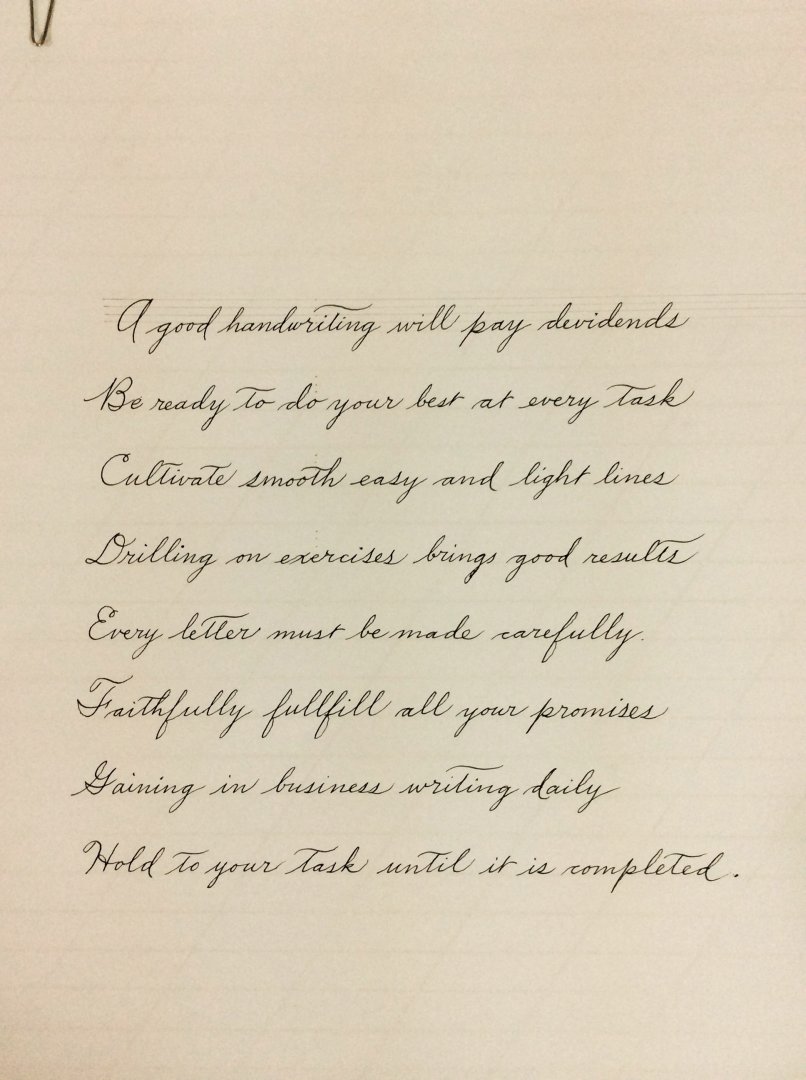 A good handwriting will pay devidends
Be ready to do your best at every task
Cultivate smooth easy and light lines
Drilling on exercises brings good results
Every letter must be made carefully.
Faithfully fullfill all your promises
Gaining in business writing daily
Hold to your task until it is completed.